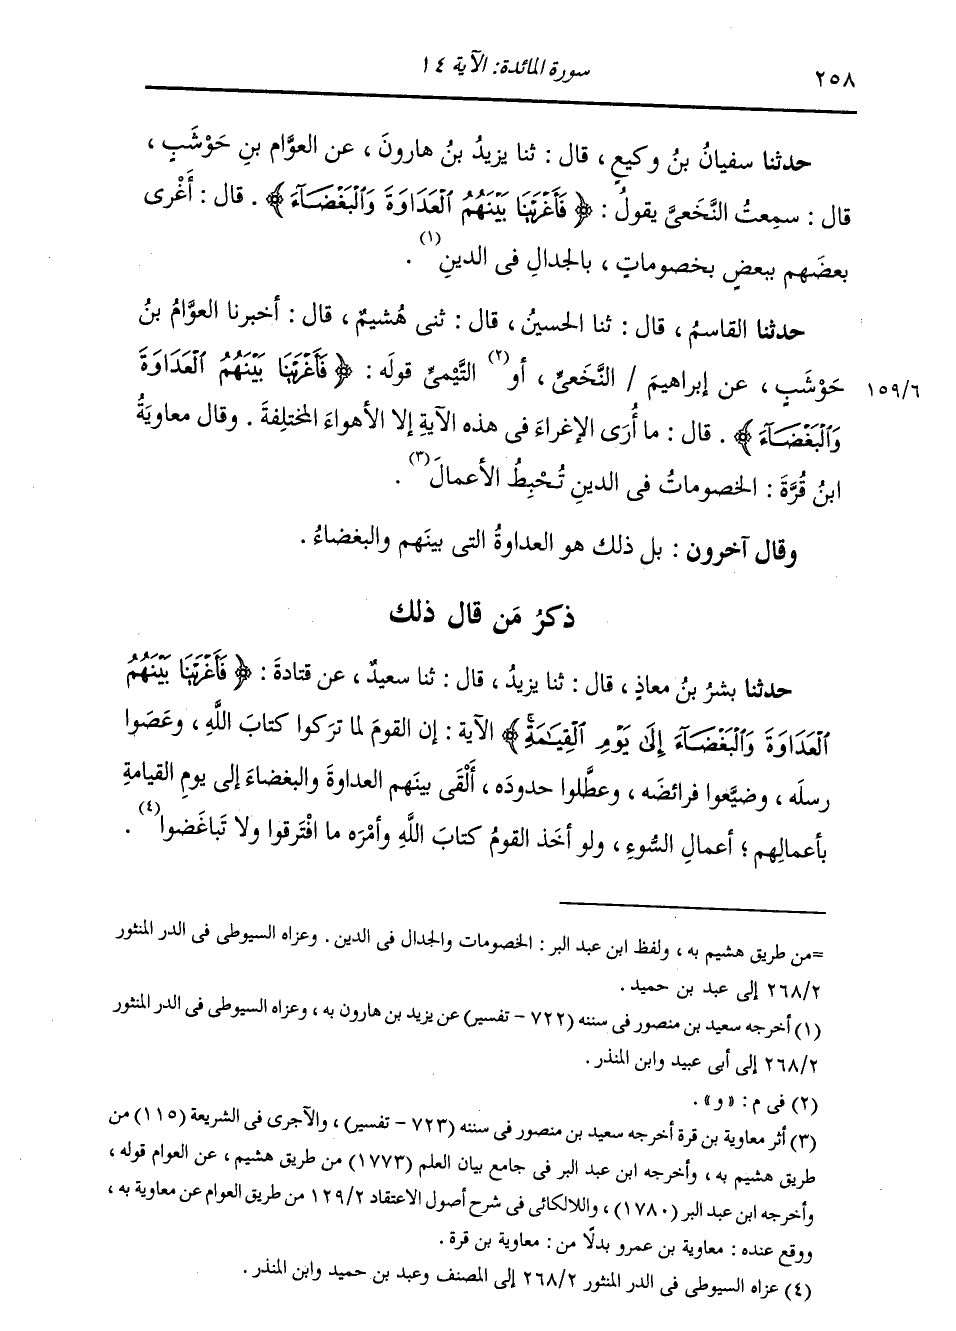 ٢٥٨
سورة المائدة: الآية ١٤
حدثنا سفيانُ بنُ وكيعٍ ، قال : ثنا يزيدُ بنُ هارونَ ، عن العوَّام بنِ حَوْشَبٍ ،
قال : سمِعتُ النَّخَعىَّ يقولُ : ﴿ فَأَغْرَيْنَا بَيْنَهُمُ ٱلْعَدَاوَةَ وَٱلْبَغْضَآءَ ﴾ . قال : أَغْرى
بعضَهم ببعضٍ بخصوماتٍ ، بالجدالِ فى الدينِ(١) .
حدثنا القاسمُ ، قال : ثنا الحسينُ ، قال : ثنى هُشيمٌ ، قال : أخبرنا العوَّامُ بنُ
١٥٩/٦ حَوْشَبٍ ، عن إبراهيمَ / النَّخَعىِّ ، أو(٢) التَّيْمىِّ قولَه : ﴿ فَأَغْرَيْنَا بَيْنَهُمُ ٱلْعَدَاوَةَ
وَٱلْبَغْضَآءَ ﴾ . قال : ما أُرَى الإغراءَ فى هذه الآيةِ إلا الأهواءَ المختلِفةَ . وقال معاويةُ
ابنُ قُرَّةَ : الخصوماتُ فى الدينِ تُحْبِطُ الأعمالَ(٣) .
وقال آخرون : بل ذلك هو العداوةُ التى بينَهم والبغضاءُ .
ذكرُ مَن قال ذلك
حدثنا بشرُ بنُ معاذٍ ، قال : ثنا يزيدُ ، قال : ثنا سعيدٌ ، عن قتادةَ : ﴿ فَأَغْرَيْنَا بَيْنَهُمُ
ٱلْعَدَاوَةَ وَٱلْبَغْضَآءَ إِلَىٰ يَوْمِ ٱلْقِيَٰمَةِۚ ﴾ الآية : إن القومَ لما ترَكوا كتابَ اللَّهِ ، وعَصَوا
رسلَه ، وضيَّعوا فرائضَه ، وعطَّلوا حدودَه ، أَلْقَى بينَهم العداوةَ والبغضاءَ إلى يومِ القيامةِ
بأعمالِهم ؛ أعمالِ السُّوءِ ، ولو أخَذ القومُ كتابَ اللَّهِ وأمْرَه ما افْتَرقوا ولا تَباغَضوا(٤) .
=من طريق هشيم به ، ولفظ ابن عبد البر : الخصومات والجدال فى الدين . وعزاه السيوطى فى الدر المنثور
٢٦٨/٢ إلى عبد بن حميد .
(١) أخرجه سعيد بن منصور فى سننه (٧٢٢ - تفسير) عن يزيد بن هارون به ، وعزاه السيوطى فى الدر المنثور
٢٦٨/٢ إلى أبى عبيد وابن المنذر .
(٢) فى م : « و » .
(٣) أثر معاوية بن قرة أخرجه سعيد بن منصور فى سننه (٧٢٣ - تفسير) ، والآجرى فى الشريعة (١١٥) من
طريق هشيم به ، وأخرجه ابن عبد البر فى جامع بيان العلم (١٧٧٣) من طريق هشيم ، عن العوام قوله ،
وأخرجه ابن عبد البر (١٧٨٠) ، واللالكائى فى شرح أصول الاعتقاد ١٢٩/٢ من طريق العوام عن معاوية به ،
ووقع عنده : معاوية بن عمرو بدلًا من : معاوية بن قرة .
(٤) عزاه السيوطى فى الدر المنثور ٢٦٨/٢ إلى المصنف وعبد بن حميد وابن المنذر .